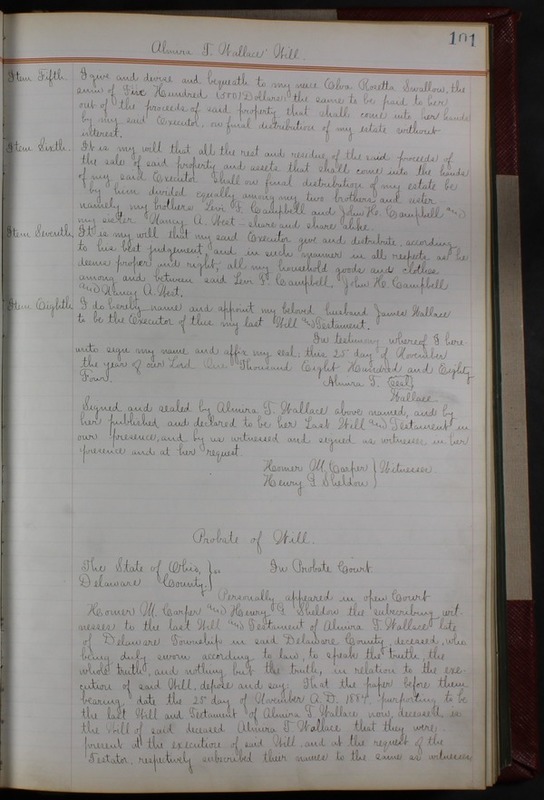 101
Almira T. Wallace' Will.
Item Fifth. I give and devise and bequeath to my niece Elva Rosetta Swallow, the
sum of Five Hundred (500) Dollars; the same to be paid to her
out of the proceeds of said property that shall come into her hands
by my said Executor, on final distribution of my estate without
interest.
Item Sixth. It is my will that all the rest and residue of the said proceeds of
the sale of said property and assets that shall come into the hands
of my said Executor shall on final distribution of my estate be
by him divided equally among my two brothers and sister
namely my brothers Levi P. Campbell and John H. Campbell and
my sister Nancy A. West - share and share alike.
Item Seventh. It is my will that my said Executor give and distribute, according
to his best judgement, and in such manner in all respects as he
deems proper and right, all my household goods and clothes
among and between said Levi P. Campbell, John H. Campbell
and Nancy A. West.
Item Eighth. I do hereby name and appoint my beloved husband James Wallace
to be the Executor of this my last Will and Testament.
In testimony whereof I here-
unto sign my name and affix my seal, this 25 day of November
the year of our Lord One Thousand Eight Hundred and Eighty
Four. Almira T. (Seal)
Wallace.
Signed and sealed by Almira T. Wallace above named, and by
her published and declared to be her Last Will and Testament in
our presence, and by us witnessed and signed as witnesses in her
presence and at her request.
Homer M. Carper } Witnesses.
Henry G. Sheldon }
Probate of Will.
The State of Ohio, } ss In Probate Court.
Delaware County. }
Personally appeared in open Court
Homer M. Carper and Henry G. Sheldon the subscribing wit-
nesses to the last Will and Testament of Almira T. Wallace late
of Delaware Township in said Delaware County, deceased, who
being duly sworn according to law, to speak the truth, the
whole truth, and nothing but the truth, in relation to the exe-
cution of said Will, depose and say: That the paper before them
bearing date the 25 day of November A.D. 1884. purporting to be
the last Will and Testament of Almira T. Wallace now deceased, is
the Will of said deceased Almira T. Wallace that they were
present at the execution of said Will, and at the request of the
Testator, respectively subscribed their names to the same as witnesses